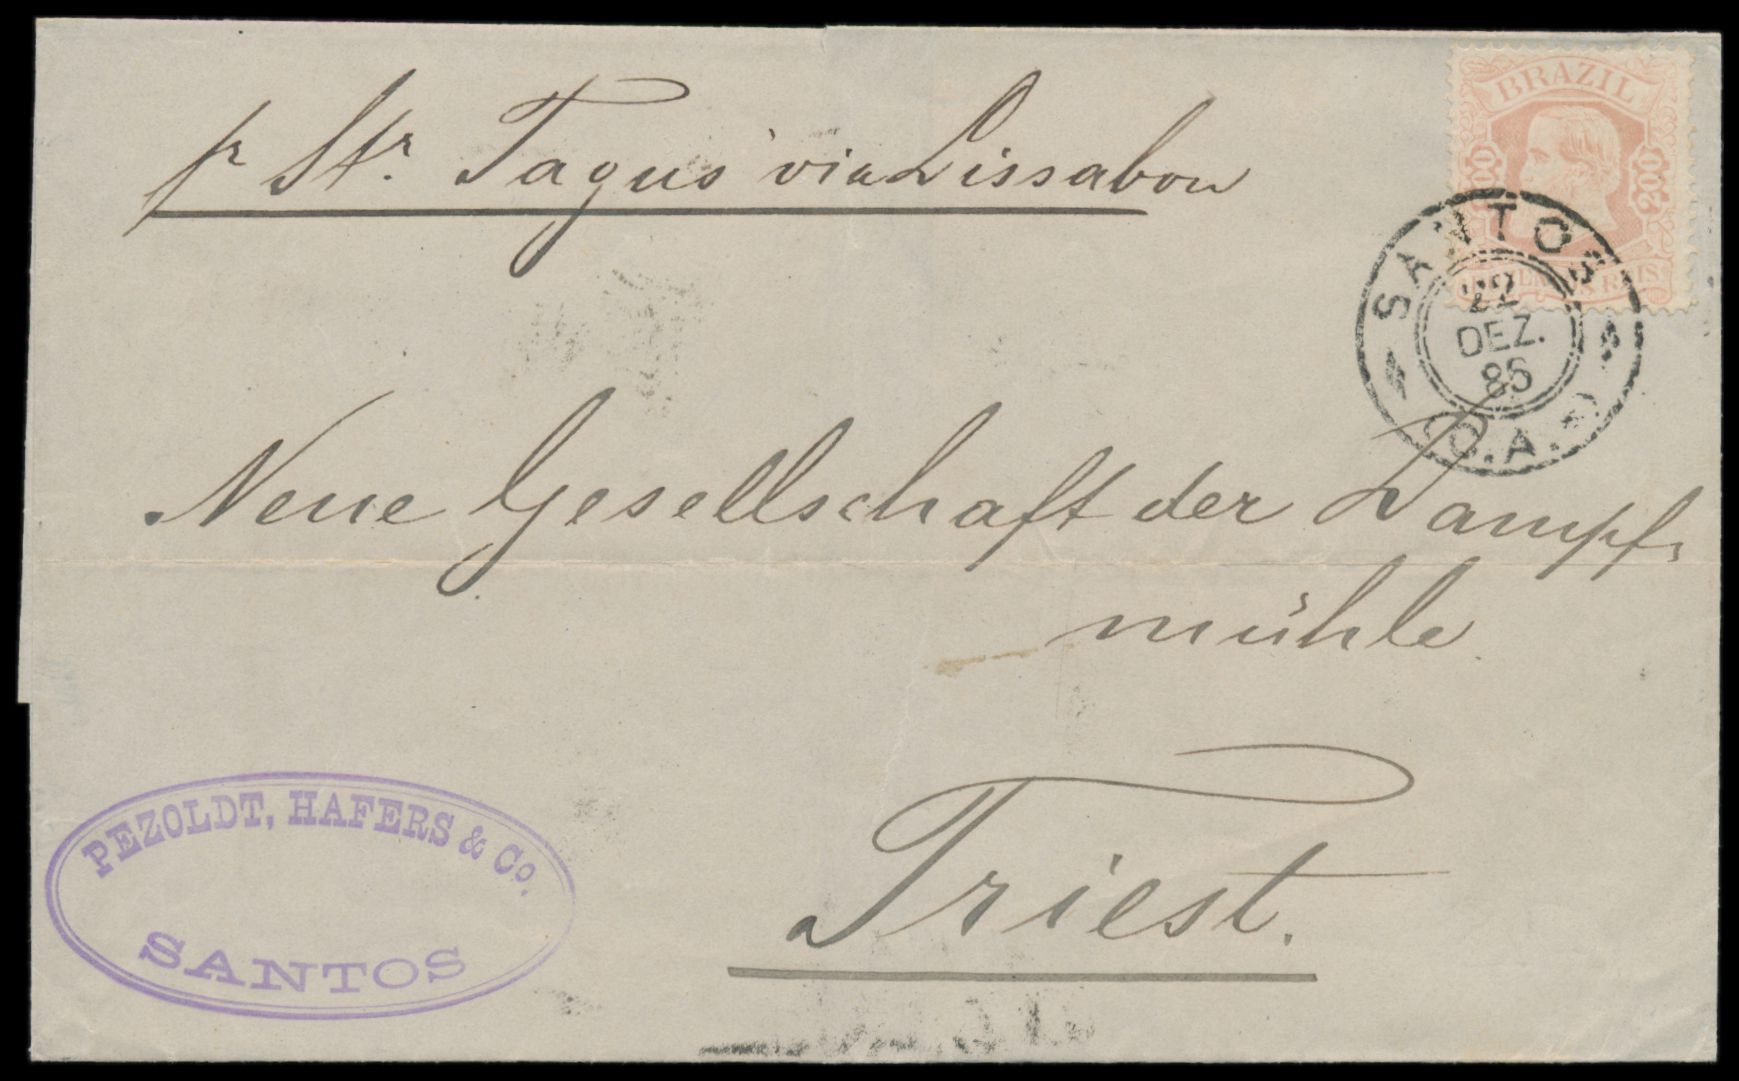 pr Str. Tagus via Lissabon
BRAZIL
200 200
SANTOS
22
DEZ.
86
Neue Gesellschaft der Dampf-
mühle
Triest.
PEZOLDT, HAFERS & Co.
SANTOS